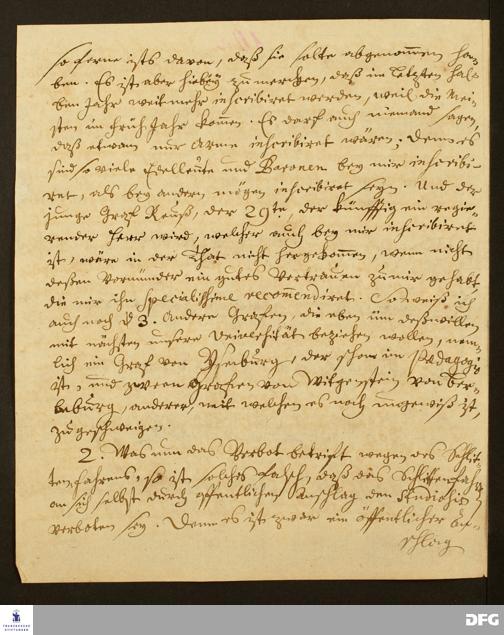 so ferne ists davon, daß sie solte abgenommen ha-
ben. Es ist aber hiebey zu mercken, daß im letzten hal-
ben Jahr weit mehr inscribiret werden, weil die mei-
sten im Früh Jahr kommen. Es darf auch niemand sagen,
daß etwan nur Arme inscribiret wären; denn es
sind so viele Edelleute und Baronen bey mir inscribi-
ret, als bey andern mögen inscribiret seyn. Und der
junge Graf Reuß, der 29te, der künfftig ein regie-
render Herr wird, welcher auch bey mir inscribiret
ist, wäre in der That nicht hergekommen, wenn nicht
deßen Vormünder ein gutes Vertrauen zu mir gehabt,
die mir ihn specialissime recommendiret. So weiß ich
auch noch 3. andere Grafen, die eben um deßwillen
mit nächsten unsere Universität beziehen wollen, nem-
lich ein Graf von Ysenburg, der schon im Pædagogio
ist, und zween Grafen von Witgenstein von Ber-
leburg, anderer, mit welchen es noch ungewiß ist,
zu geschweigen.
2. Was nun das Verbot betrift wegen des Schlit-
tenfahrens, so ist solches falsch, daß das Schlittenfahren
an sich selbst durch öffentlichen Anschlag den Studiosis
verboten sey. Denn es ist zwar ein öffentlicher An-
schlag
FRANCKESCHE
STIFTUNGEN
DFG